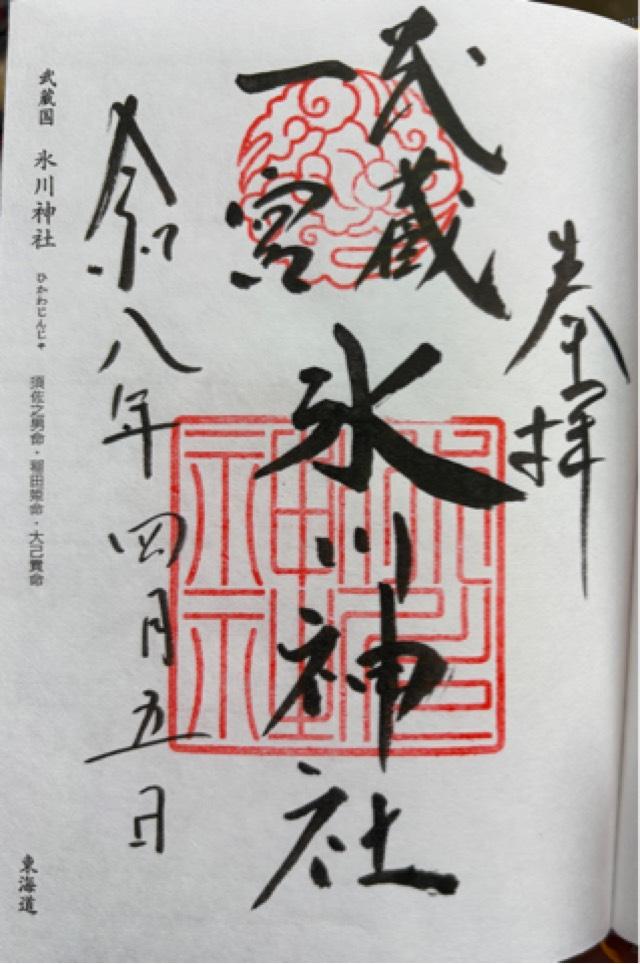 奉拝
武蔵
一宮
氷川神社
令和八年四月五日
武蔵国 氷川神社 ひかわじんじゃ 須佐之男命・稲田姫命・大己貴命
東海道